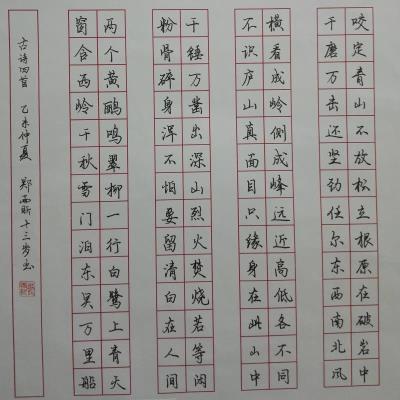 咬定青山不放松立根原在破岩中
千磨万击还坚劲任尔东西南北风
横看成岭侧成峰远近高低各不同
不识庐山真面目只缘身在此山中
千锤万凿出深山烈火焚烧若等闲
粉骨碎身浑不怕要留清白在人间
两个黄鹂鸣翠柳一行白鹭上青天
窗含西岭千秋雪门泊东吴万里船
古诗四首 乙未仲夏 郑西昕十三岁书